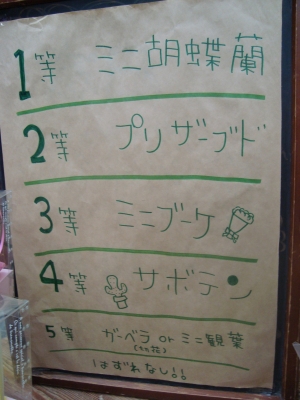 1等 ミニ胡蝶蘭
2等 プリザーブド
3等 ミニブーケ
4等 サボテン
5等 ガーベラ or ミニ観葉
はずれなし!!